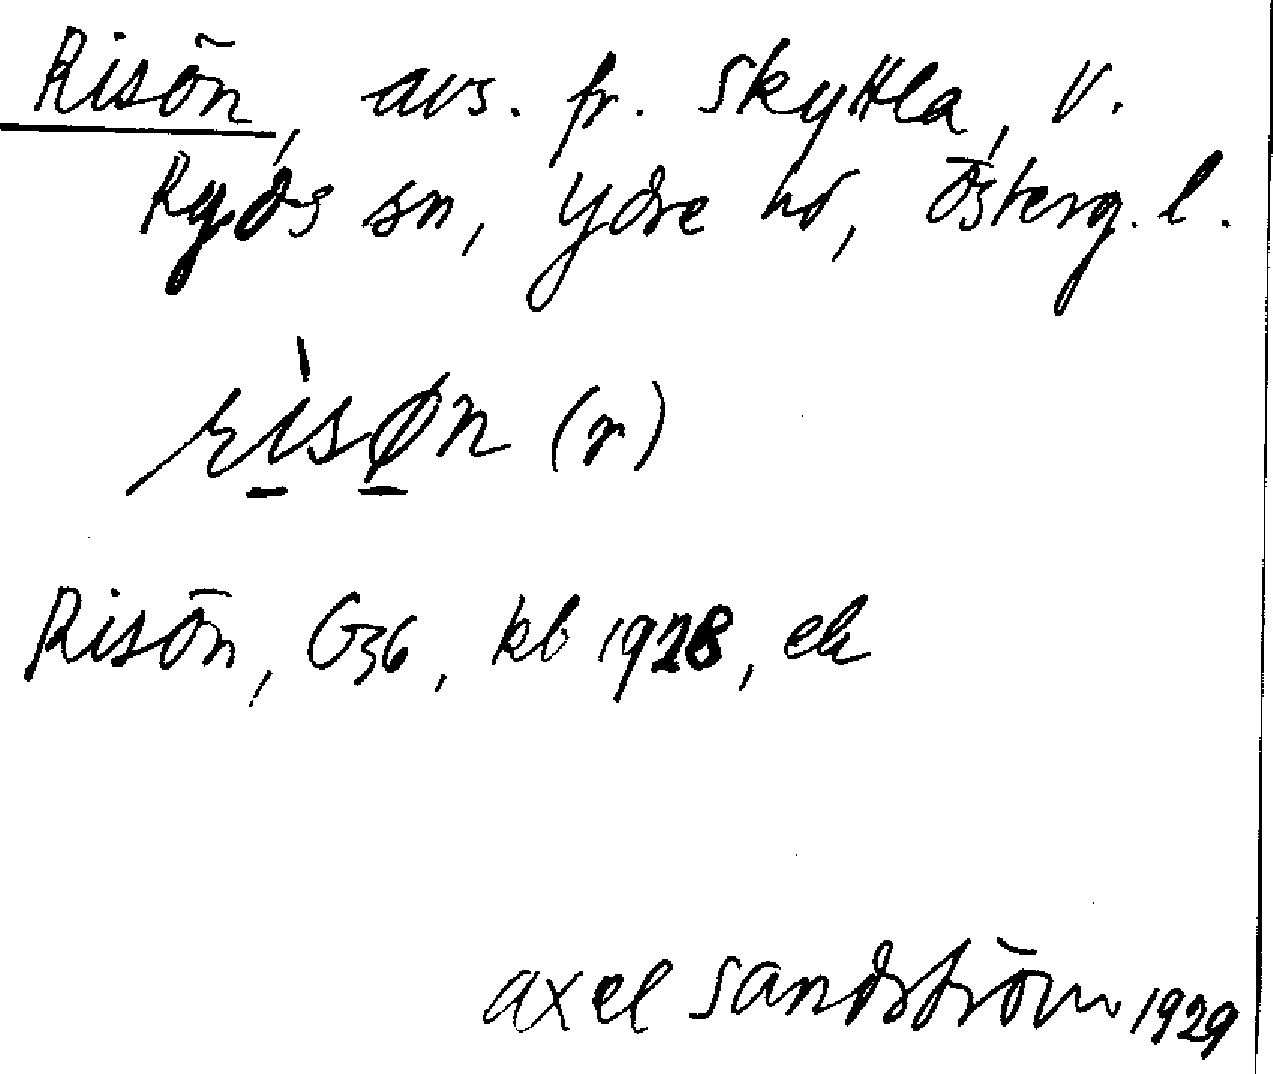 Risön, avs. fr. Skyttla, V.
Ryds sn, Ydre hd, Österg. l.
rìsøn (r)
Risön, G36, kb 1928, ek
Axel Sandström 1929